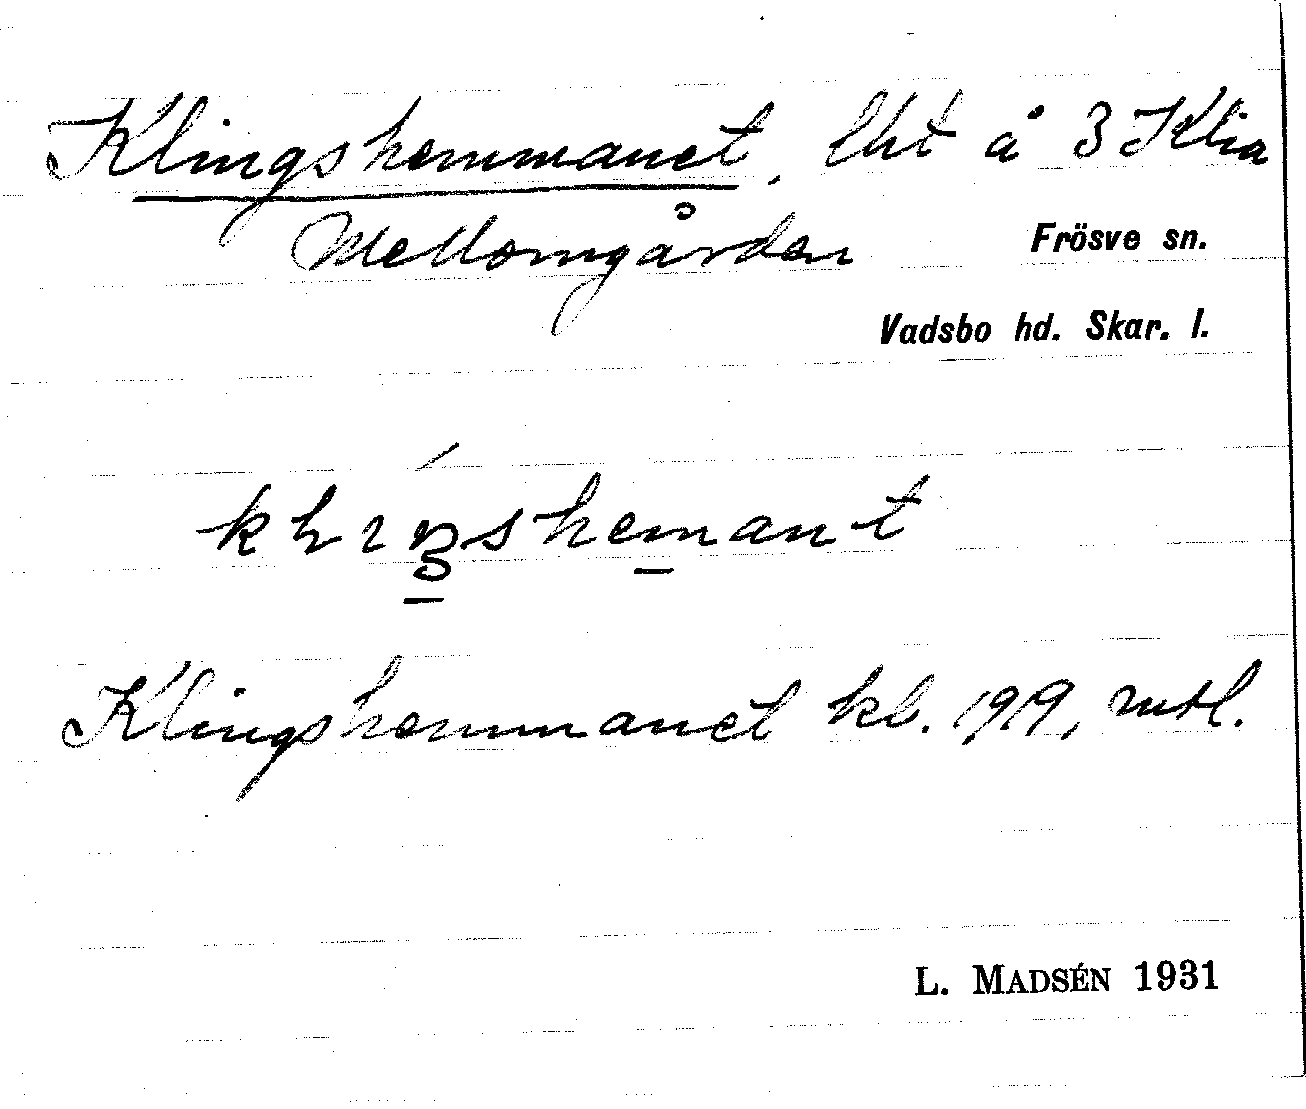 Klingshemmanet, lht å 3 Klia
Mellomgården Frösve sn.
Vadsbo hd. Skar. l.
Klingshemmanet kl. 1919, mtl.
L. MADSÉN 1931